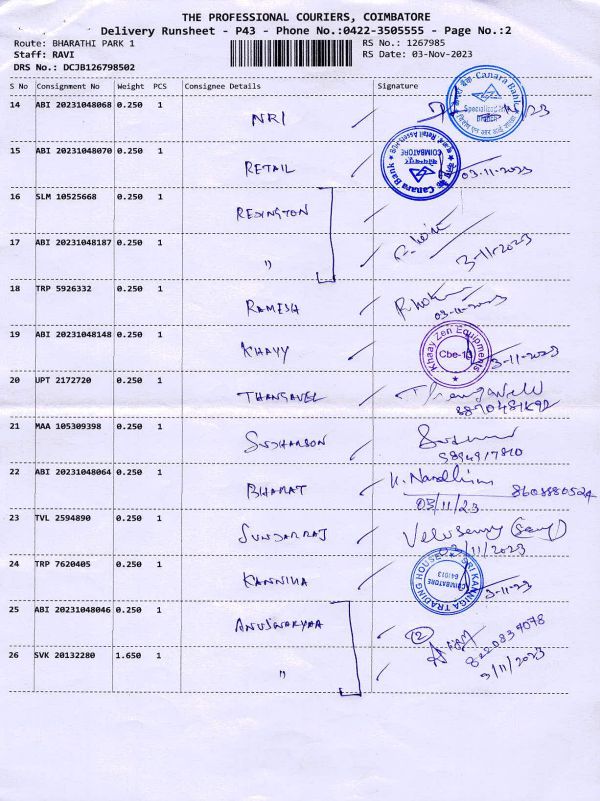 THE PROFESSIONAL COURIERS, COIMBATORE
Delivery Runsheet - P43 - Phone No.:0422-3505555 - Page No.:2
Route: BHARATHI PARK 1 RS No.: 1267985
Staff: RAVI RS Date: 03-Nov-2023
DRS No.: DCJB126798502
S No Consignment No Weight PCS Consignee Details Signature
14 ABI 20231048068 0.250 1 NRI
Canara Bank
15 ABI 20231048070 0.250 1 RETAIL 03-11-2023
Canara Bank
COIMBATORE
16 SLM 10525668 0.250 1 REDINGTON
17 ABI 20231048187 0.250 1 " 3-11-2023
18 TRP 5926332 0.250 1 RAMESH
03-11-2023
19 ABI 20231048148 0.250 1 KHAYY 3-11-2023
Khaay Zen Equipments
Cbe-18
20 UPT 2172720 0.250 1 THANGAVEL
21 MAA 105309398 0.250 1 SUDHARSON
22 ABI 20231048064 0.250 1 BHARAT K. Nandhini 8608880524
03/11/23
23 TVL 2594890 0.250 1 SUNDARRAJ
/11/2023
24 TRP 7620405 0.250 1 KANNIKA 3-11-23
SRI KANNIGA TRADING HOUSE
COIMBATORE
641013
25 ABI 20231048046 0.250 1 12
8220839078
26 SVK 20132280 1.650 1 " 3/11/2023